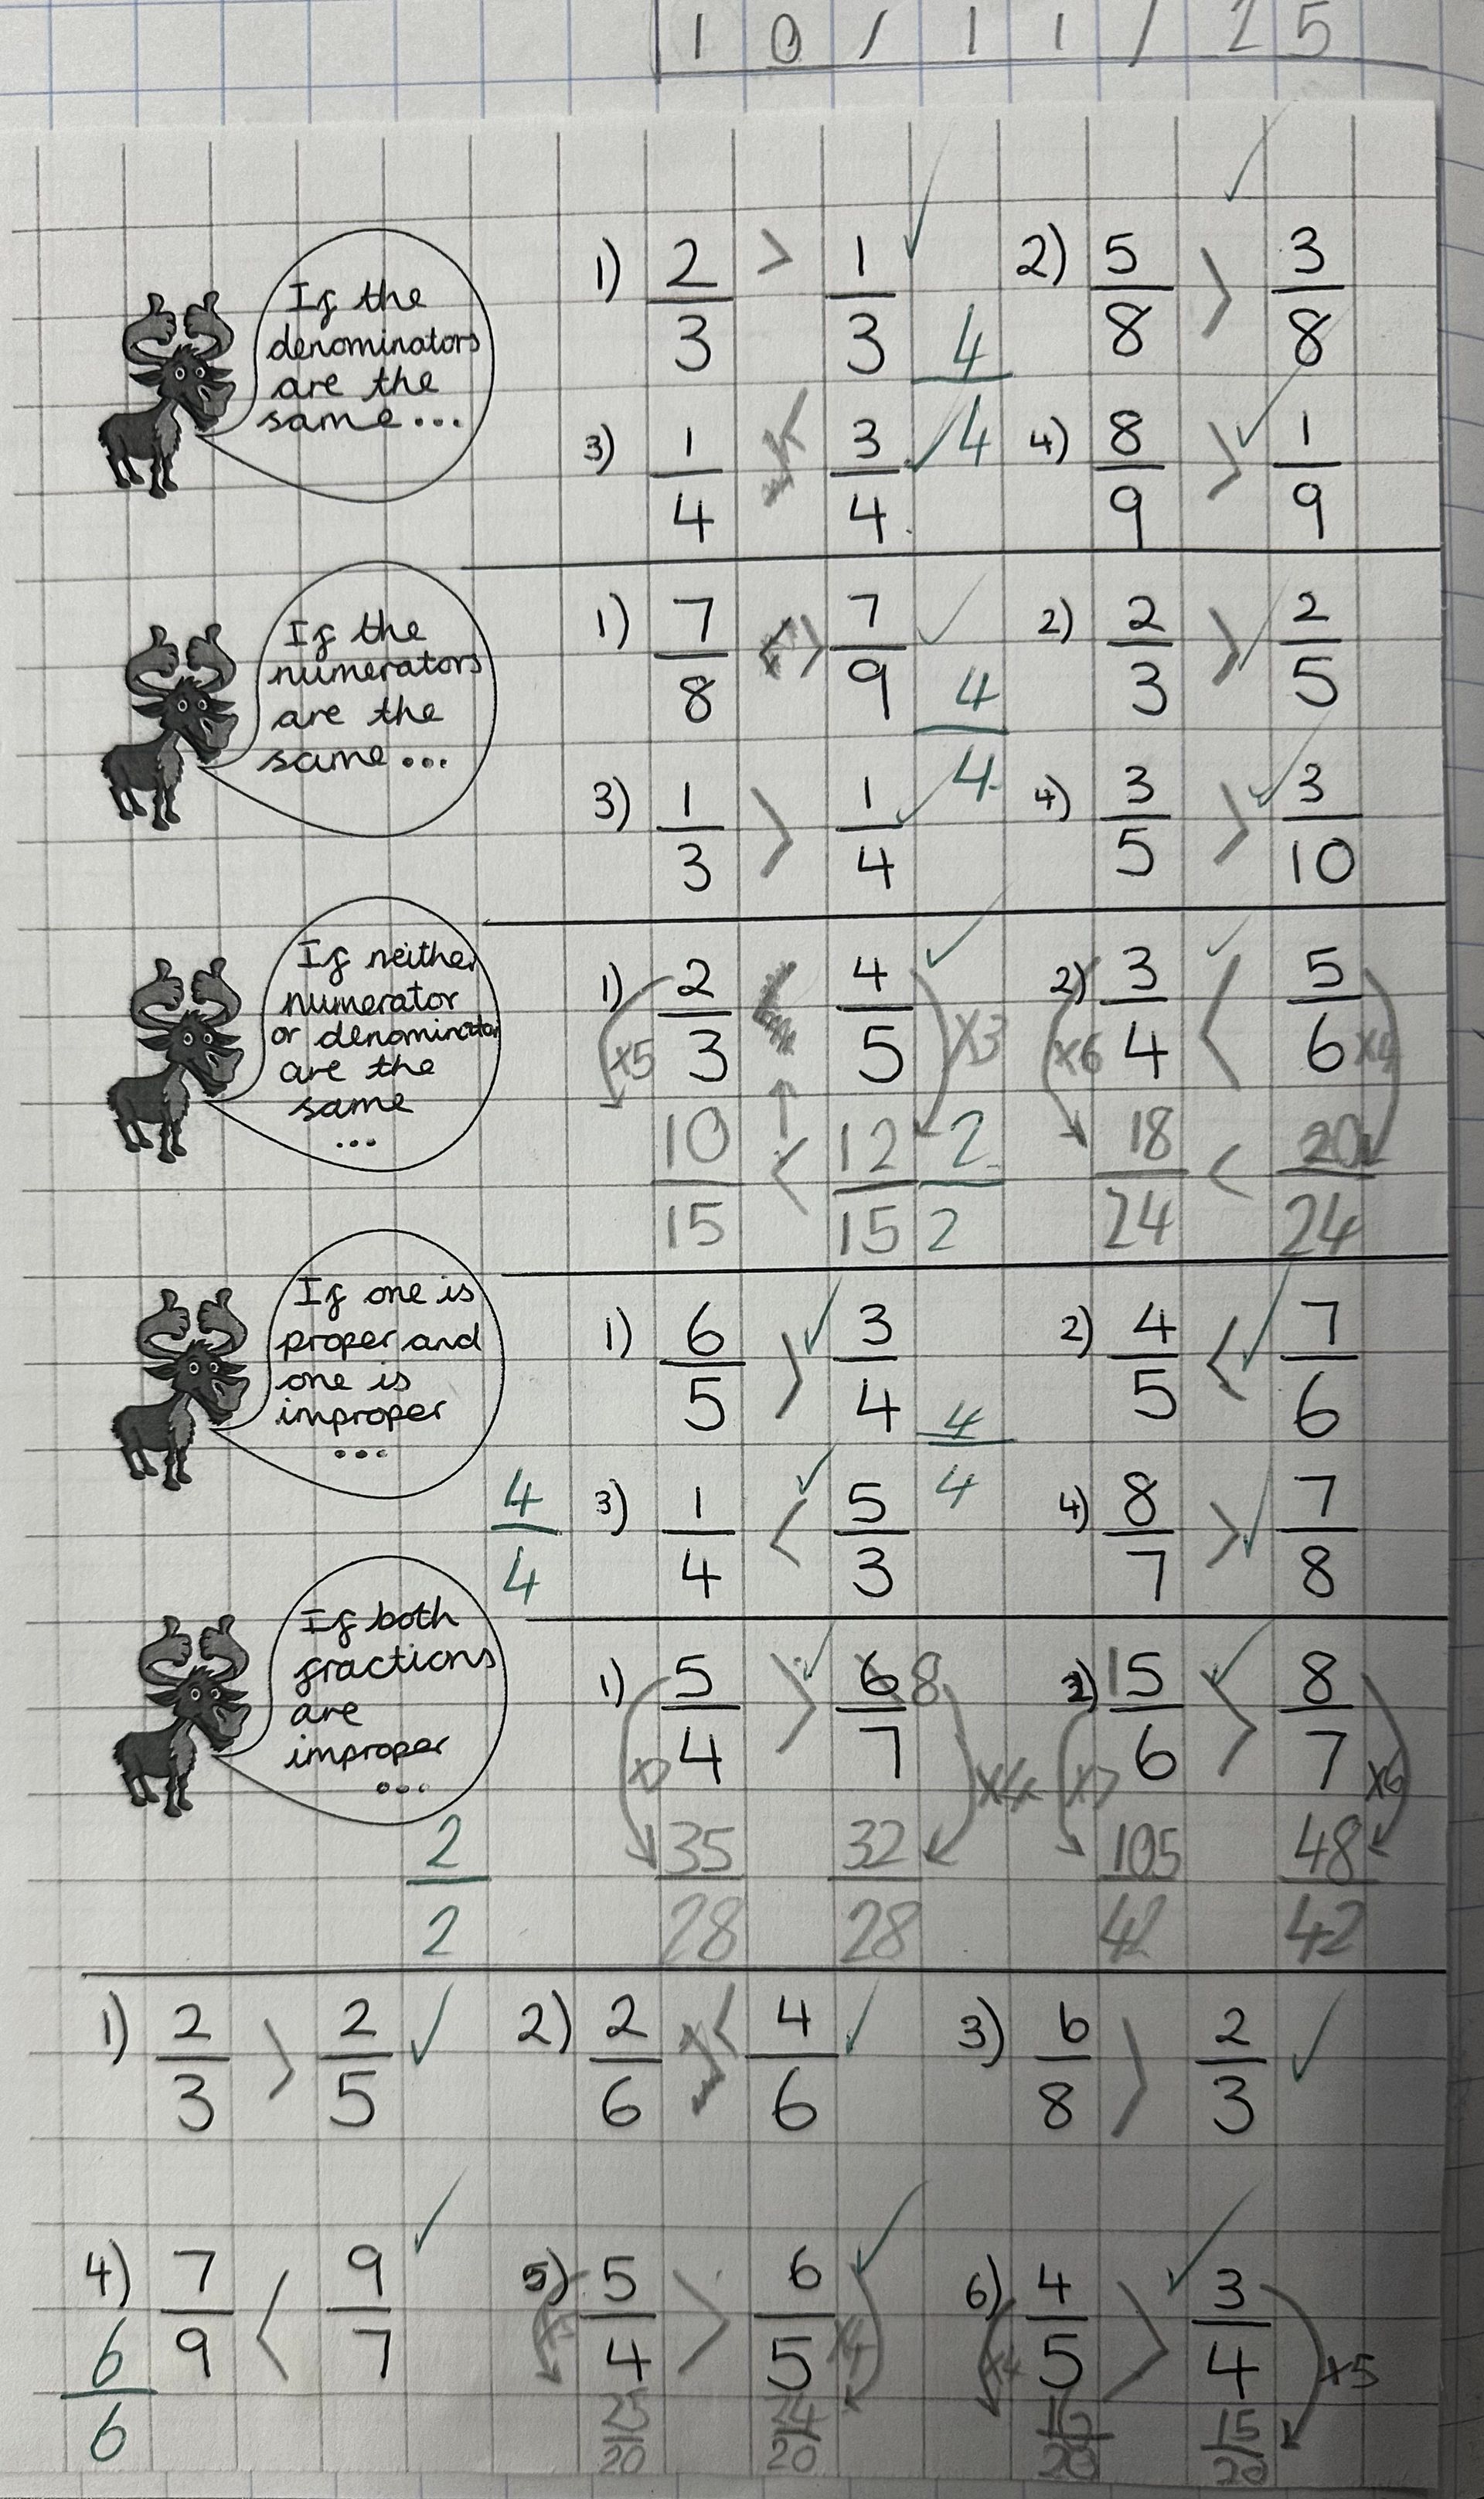 10/11/25
If the
denominators
are the
same...
1) 2/3 > 1/3 ✓ 2) 5/8 > 3/8 ✓
4/4
3) 1/4 < 3/4 ✓ 4) 8/9 > 1/9 ✓
If the
numerators
are the
same...
1) 7/8 > 7/9 ✓ 2) 2/3 > 2/5 ✓
4/4
3) 1/3 > 1/4 ✓ 4) 3/5 > 3/10 ✓
If neither
numerator
or denominator
are the
same
...
1) 2/3 < 4/5 ✓ 2) 3/4 < 5/6 ✓
x5 x3 x6 x4
10/15 < 12/15 2/2 18/24 < 20/24
If one is
proper and
one is
improper
...
1) 6/5 > 3/4 ✓ 2) 4/5 < 7/6 ✓
4/4
4/4 3) 1/4 < 5/3 ✓ 4) 8/7 > 7/8 ✓
If both
fractions
are
improper
...
1) 5/4 > 6/7 8 ✓ 2) 15/6 > 8/7 ✓
x7 x4 x7 x6
2/2 35/28 32/28 105/42 48/42
1) 2/3 > 2/5 ✓ 2) 2/6 < 4/6 ✓ 3) 6/8 > 2/3 ✓
4) 7/9 < 9/7 ✓ 5) 5/4 > 6/5 ✓ 6) 4/5 > 3/4 ✓
6/6 x5 x4 x4 x5
25/20 24/20 16/20 15/20